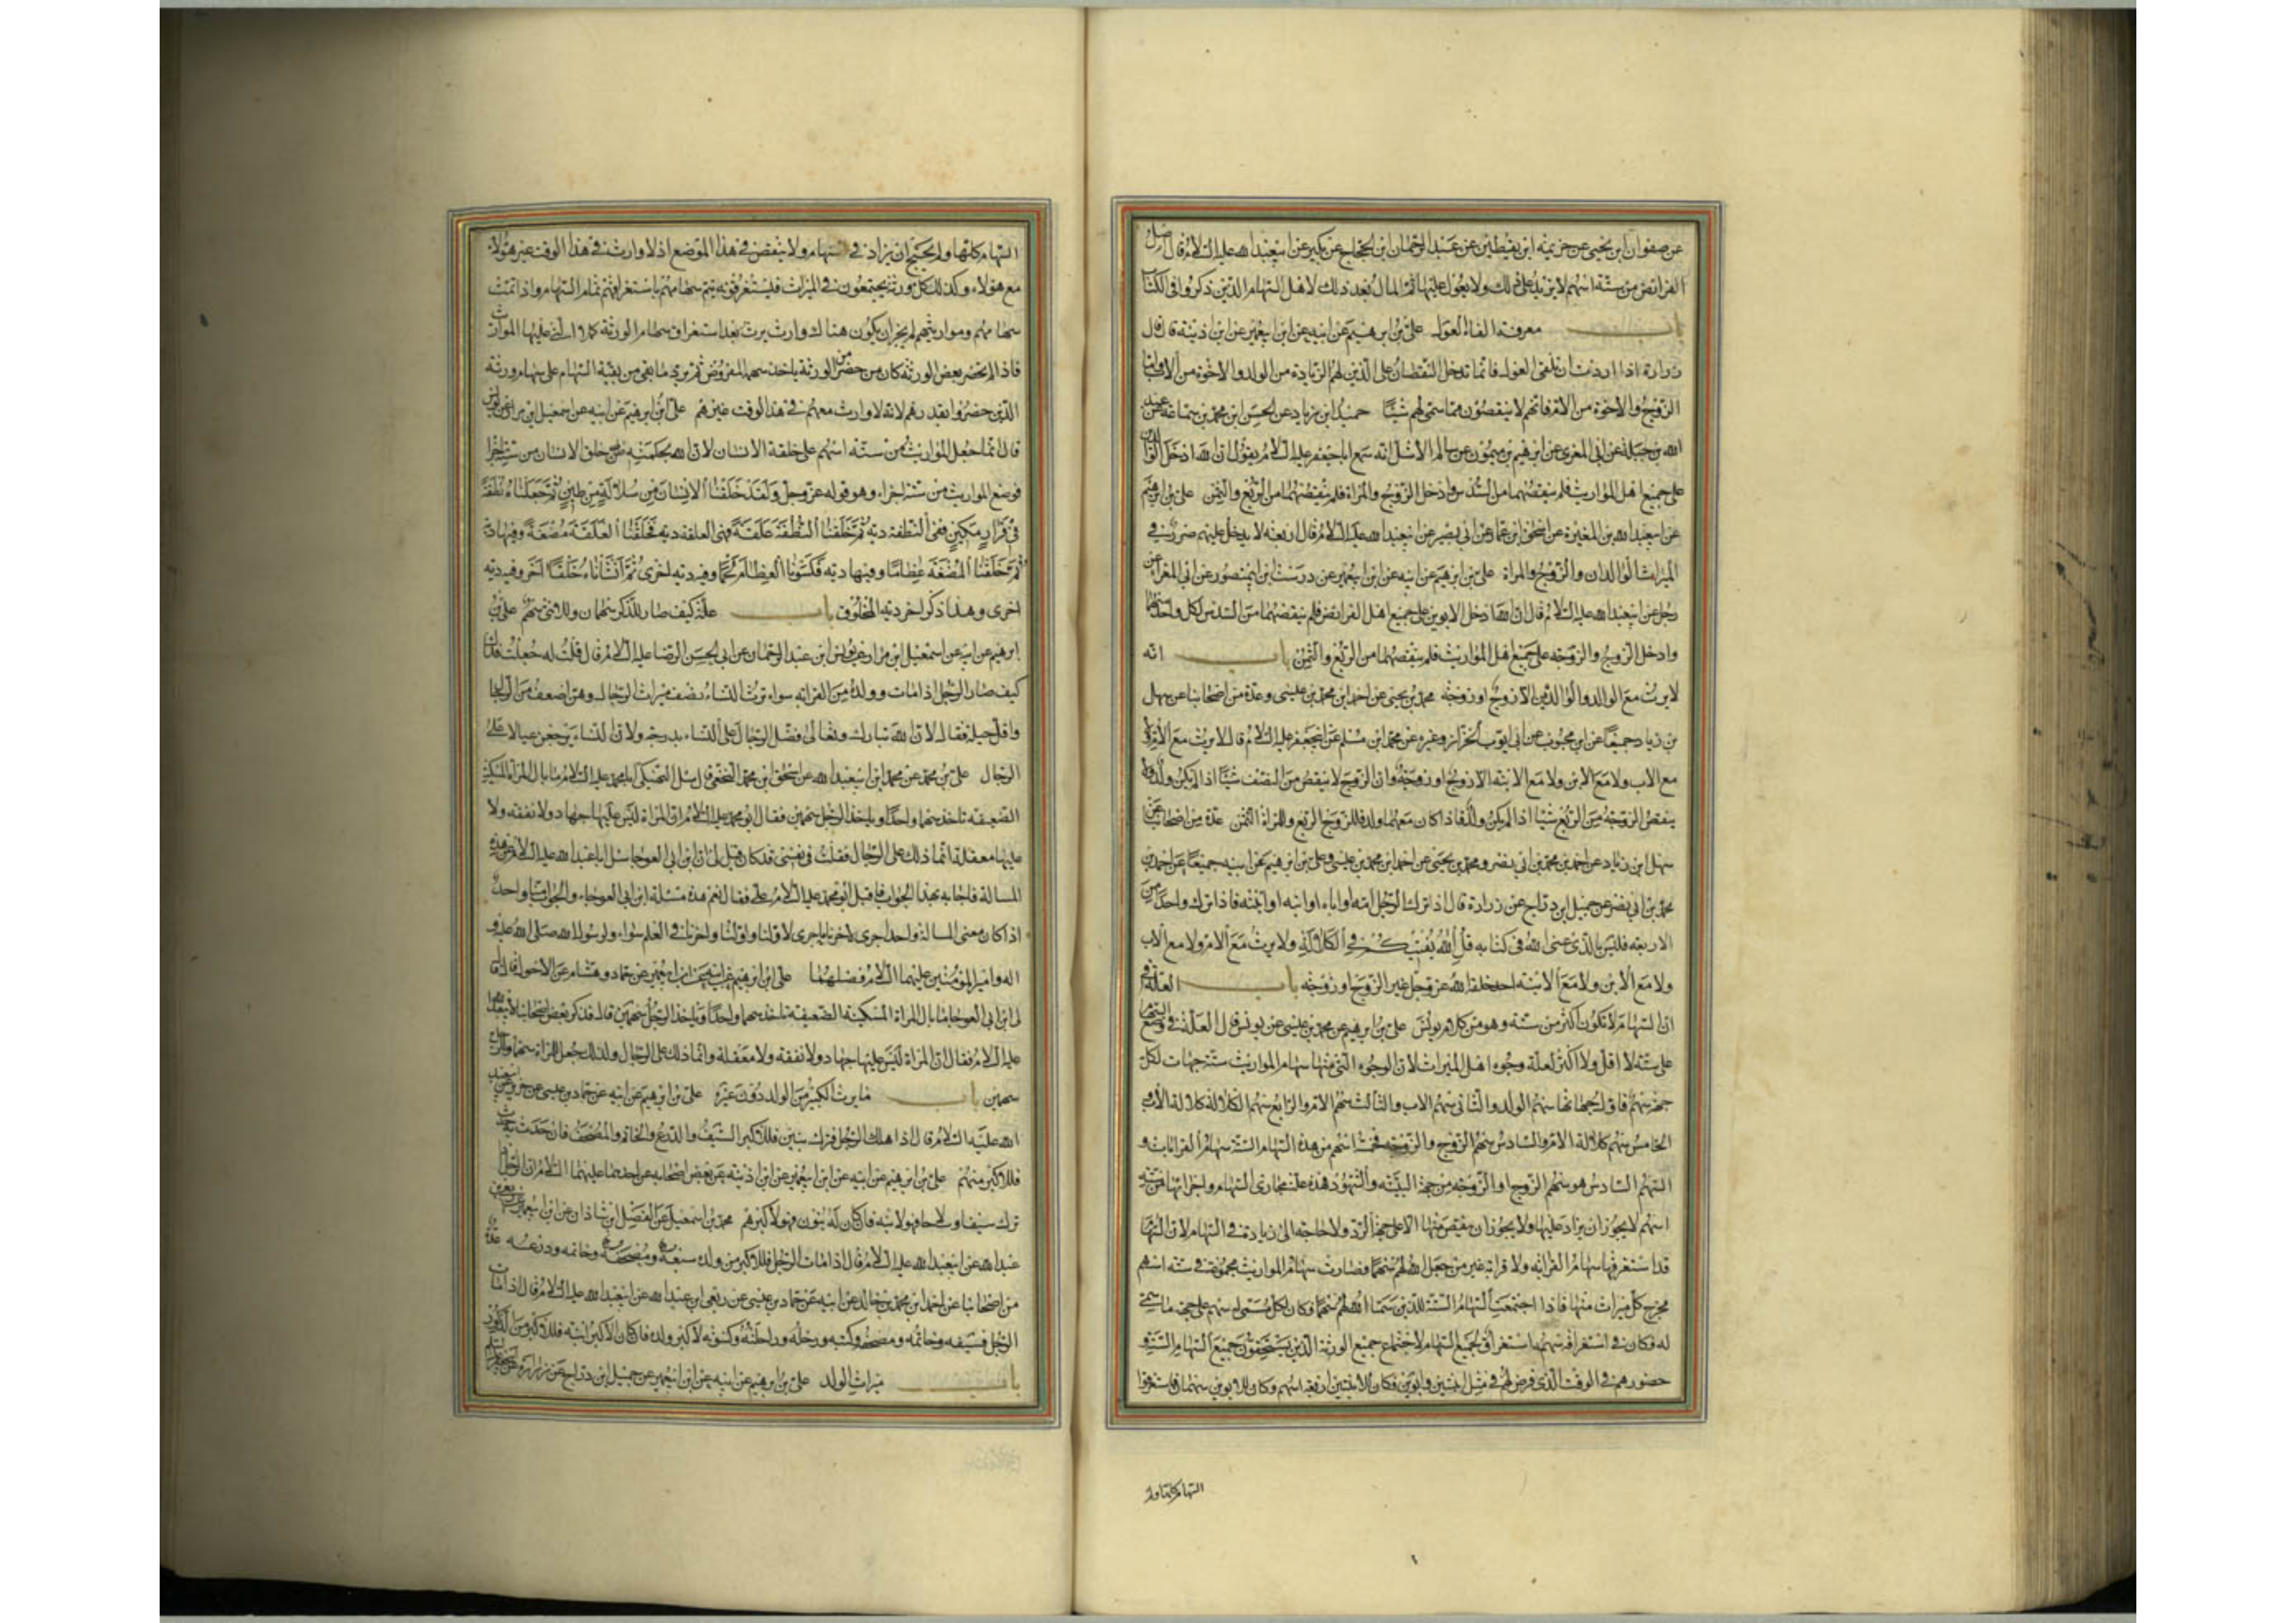 عن صفوان ابن يحيى عن خزيمة ابن يقطين عن عبد الرحمان ابن الحجاج عن بكير عن ابيعبدالله عليه السلام قال اصل
الفرائض من ستة اسهم لا يزيد على ذلك ولا يعول عليها ثم المال بعد ذلك لاهل السهام الذين ذكروا في الكتاب
باب معرفة القاء العول علي بن ابرهيم عن ابيه عن ابن ابيعمير عن ابن اذينة قال قال
زرارة اذا اردت ان تلقى العول فانما تدخل النقصان على الذين لهم الزيادة من الولد والاخوة من الاب واما
الزوج والاخوة من الام فانهم لا ينقصون مما سمى لهم شيئا حميد ابن زياد عن الحسن ابن محمد بن سماعة عن عبد
الله بن جبلة عن ابي المغرى عن ابرهيم بن ميمون عن سالم الاشل انه سمع اباجعفر عليه السلام يقول ان الله ادخل الوالدين
على جميع اهل المواريث فلم ينقصهما من السدس وادخل الزوج والمراة فلم ينقصهما من الربع والثمن علي بن ابرهيم
عن ابيعبدالله بن المغيرة عن اسحق ابن عمار عن ابي بصير عن ابيعبدالله عليه السلام قال اربعة لا يدخل عليهم ضرر في
الميراث الوالدان والزوج والمراة علي بن ابرهيم عن ابيه عن ابن ابيعمير عن درست ابن ابيمنصور عن ابي المغرا عن
رجل عن ابيعبدالله عليه السلام قال ان الله ادخل الابوين على جميع اهل الفرائض فلم ينقصهما من السدس لكل واحد منهما
وادخل الزوج والزوجة على جميع اهل المواريث فلم ينقصهما من الربع والثمن باب انه
لا يرث مع الوالد والوالدين الا زوج او زوجة محمد بن يحيى عن احمد ابن محمد بن عيسى وعدة من اصحابنا عن سهل
بن زياد جميعا عن ابن محبوب عن ابي ايوب الخزاز وغيره عن محمد ابن مسلم عن ابيجعفر عليه السلام قال لا يرث مع الام ولا
مع الاب ولا مع الابن ولا مع الابنة الا زوج او زوجة وان الزوج لا ينقص من النصف شيئا اذا لم يكن ولد ولا
ينقص الزوجة من الربع شيئا اذا لم يكن ولد فاذا كان معهما ولد فللزوج الربع وللمراة الثمن عدة من اصحابنا عن
سهل ابن زياد عن احمد بن محمد بن ابي نصر ومحمد بن يحيى عن احمد ابن محمد بن عيسى وعلي بن ابرهيم عن ابيه جميعا عن احمد بن
محمد بن ابي نصر عن جميل ابن دراج عن زرارة قال اذا ترك الرجل امه او اباه او ابنه او ابنته فاذا ترك واحدا من
الاربعة فليس بالذي عنى الله في كتابه قل الله يفتيكم في الكلالة ولا يرث مع الام ولا مع الاب
ولا مع الابن ولا مع الابنة احد خلقه الله عز وجل غير الزوج او زوجة باب العلة في
ان السهام لا تكون اكثر من ستة وهو من كلام يونس علي بن ابرهيم عن محمد بن عيسى عن يونس قال العلة في وضع السهام
على ستة لا اقل ولا اكثر لعلة وجوه اهل الميراث لان الوجوه التي منها سهام المواريث ستة جهات لكل
جهة سهم فاول جهاتها سهم الولد والثاني سهم الاب والثالث سهم الام والرابع سهم الكلالة كلالة الاب
الخامس سهم كلالة الام والسادس سهم الزوج والزوجة فخمسة اسهم من هذه السهام الستة سهام القرابات و
السهم السادس هو سهم الزوج او الزوجة من جهة البينة والشهود هذه علة مجاري السهام واجرائها من ستة
اسهم لا يجوز ان يزاد عليها ولا يجوز ان ينقص منها الا على جهة الرد ولا حاجة الى زيادة في السهام لان السهام
قد استغرقها سهام القرابة ولا قرابة غير من جعل الله لهم سهما فصارت سهام المواريث مجموعة في ستة اسهم
مخرج كل ميراث منها فاذا اجتمعت السهام الستة للذين سمى الله لهم سهما فكان لكل مسمى له سهم على جهة ما سمى
له فكان في استغراقه سهمه استغراق لجميع السهام لاجتماع جميع الورثة الذين يستحقون جميع السهام الستة و
حضورهم في الوقت الذي فرض لهم في مثل ابنتين وابوين فكان للابنتين اربعة اسهم وكان للابوين سهمان فاستغرقوا
السهام كلها ولم
السهام كلها ولم يحتج ان يزاد في السهام ولا ينقص في هذا الموضع اذ لا وارث في هذا الوقت غير هؤلاء
مع هؤلاء وكذلك كل ورثة يجتمعون في الميراث فيستغرقونه يتم سهامهم باستغراقهم تمام السهام واذا تمت
سهامهم ومواريثهم لم يجز ان يكون هناك وارث يرث بعد استغراق سهام الورثة كملا التي عليها المواريث
فاذا لم يحضر بعض الورثة كان من حضر من الورثة ياخذ سهمه المفروض ثم يرد ما بقي من بقية السهام على سهام ورثة
الذين حضروا بقدرهم لانه لا وارث معهم في هذا الوقت غيرهم علي ابن ابرهيم عن ابيه عن اسمعيل ابن مرار عن يونس
قال انما جعل المواريث من ستة اسهم على خلقة الانسان لان الله بحكمته خلق الانسان من ستة اجزاء
فوضع المواريث من ستة اجزاء وهو قوله عز وجل ولقد خلقنا الانسان من سلالة من طين ثم جعلناه نطفة
في قرار مكين ففي النطفة دية ثم خلقنا النطفة علقة ففي العلقة دية فخلقنا العلقة مضغة وفيها دية
ثم خلقنا المضغة عظاما وفيها دية فكسونا العظام لحما وفيه دية اخرى ثم انشاناه خلقا اخر وفيه دية
اخرى وهذا ذكر اخر دية المخلوق باب علة كيف صار للذكر سهمان وللانثى سهم علي بن
ابرهيم عن ابيه عن اسمعيل ابن مرار عن يونس ابن عبد الرحمان عن ابي الحسن الرضا عليه السلام قال قلت له جعلت فداك
كيف صار الرجل اذا مات وولده من القرابة سواء ترث النساء نصف ميراث الرجال وهن اضعف من الرجال
واقل حيلة فقال لان الله تبارك وتعالى فضل الرجال على النساء بدرجة ولان النساء يرجعن عيالا على
الرجال علي بن محمد عن محمد ابن ابيعبدالله عن اسحق ابن محمد النخعي قال سئل النهيكي ابامحمد عليه السلام ما بال المراة المسكينة
الضعيفة تاخذ سهما واحدا وياخذ الرجل سهمين فقال ابو محمد عليه السلام ان المراة ليس عليها جهاد ولا نفقة ولا
عليها معقلة انما ذلك على الرجال فقلت في نفسي قد كان قيل لي ان ابن ابي العوجا سئل اباعبدالله عليه السلام عن هذه
المسالة فاجابه بهذا الجواب فاقبل ابو محمد عليه السلام علي فقال نعم هذه مسئلة ابن ابي العوجاء والجواب منا واحد
اذا كان معنى المسالة واحدا جرى لاخرنا ما جرى لاولنا واولنا واخرنا في العلم سواء ولرسول الله صلى الله عليه و
اله وامير المؤمنين عليهما السلام فضلهما علي ابن ابرهيم عن ابيه عن ابن ابيعمير عن حماد وهشام عن الاحول قال قال
لي ابن ابي العوجا ما بال المراة المسكينة الضعيفة تاخذ سهما واحدا وياخذ الرجل سهمين قال فذكر بعض اصحابنا لابيعبدالله
عليه السلام فقال ان المراة ليس عليها جهاد ولا نفقة ولا معقلة وانما ذلك على الرجال ولذلك جعل للمراة سهما وللرجل
سهمين باب ما يرث الكبير من الولد دون غيره علي بن ابرهيم عن ابيه عن حماد بن عيسى عن حريز عن ابيعبد
الله عليه السلام قال اذا هلك الرجل فترك بنين فللاكبر السيف والدرع والخاتم والمصحف فان حدث به حدث
فللاكبر منهم علي بن ابرهيم عن ابيه عن ابن ابيعمير عن ابن اذينة عن بعض اصحابه عن احدهما عليهما السلام ان الرجل اذا
ترك سيفا وسلاحا فهو لابنه فان كان له بنون فهو لاكبرهم محمد بن اسمعيل عن الفضل ابن شاذان عن ابن ابيعمير عن ربعي بن
عبدالله عن ابيعبدالله عليه السلام قال اذا مات الرجل فللاكبر من ولده سيفه ومصحفه وخاتمه ودرعه عدة
من اصحابنا عن احمد ابن محمد بن خالد عن ابيه عن حماد بن عيسى عن ربعي ابن عبدالله عن ابيعبدالله عليه السلام قال اذا مات
الرجل فسيفه وخاتمه ومصحفه وكتبه ورحله وراحلته وكسوته لاكبر ولده فان كان الاكبر ابنة فللاكبر من الذكور
باب ميراث الولد علي بن ابرهيم عن ابيه عن ابن ابيعمير عن جميل ابن دراج عن زرارة